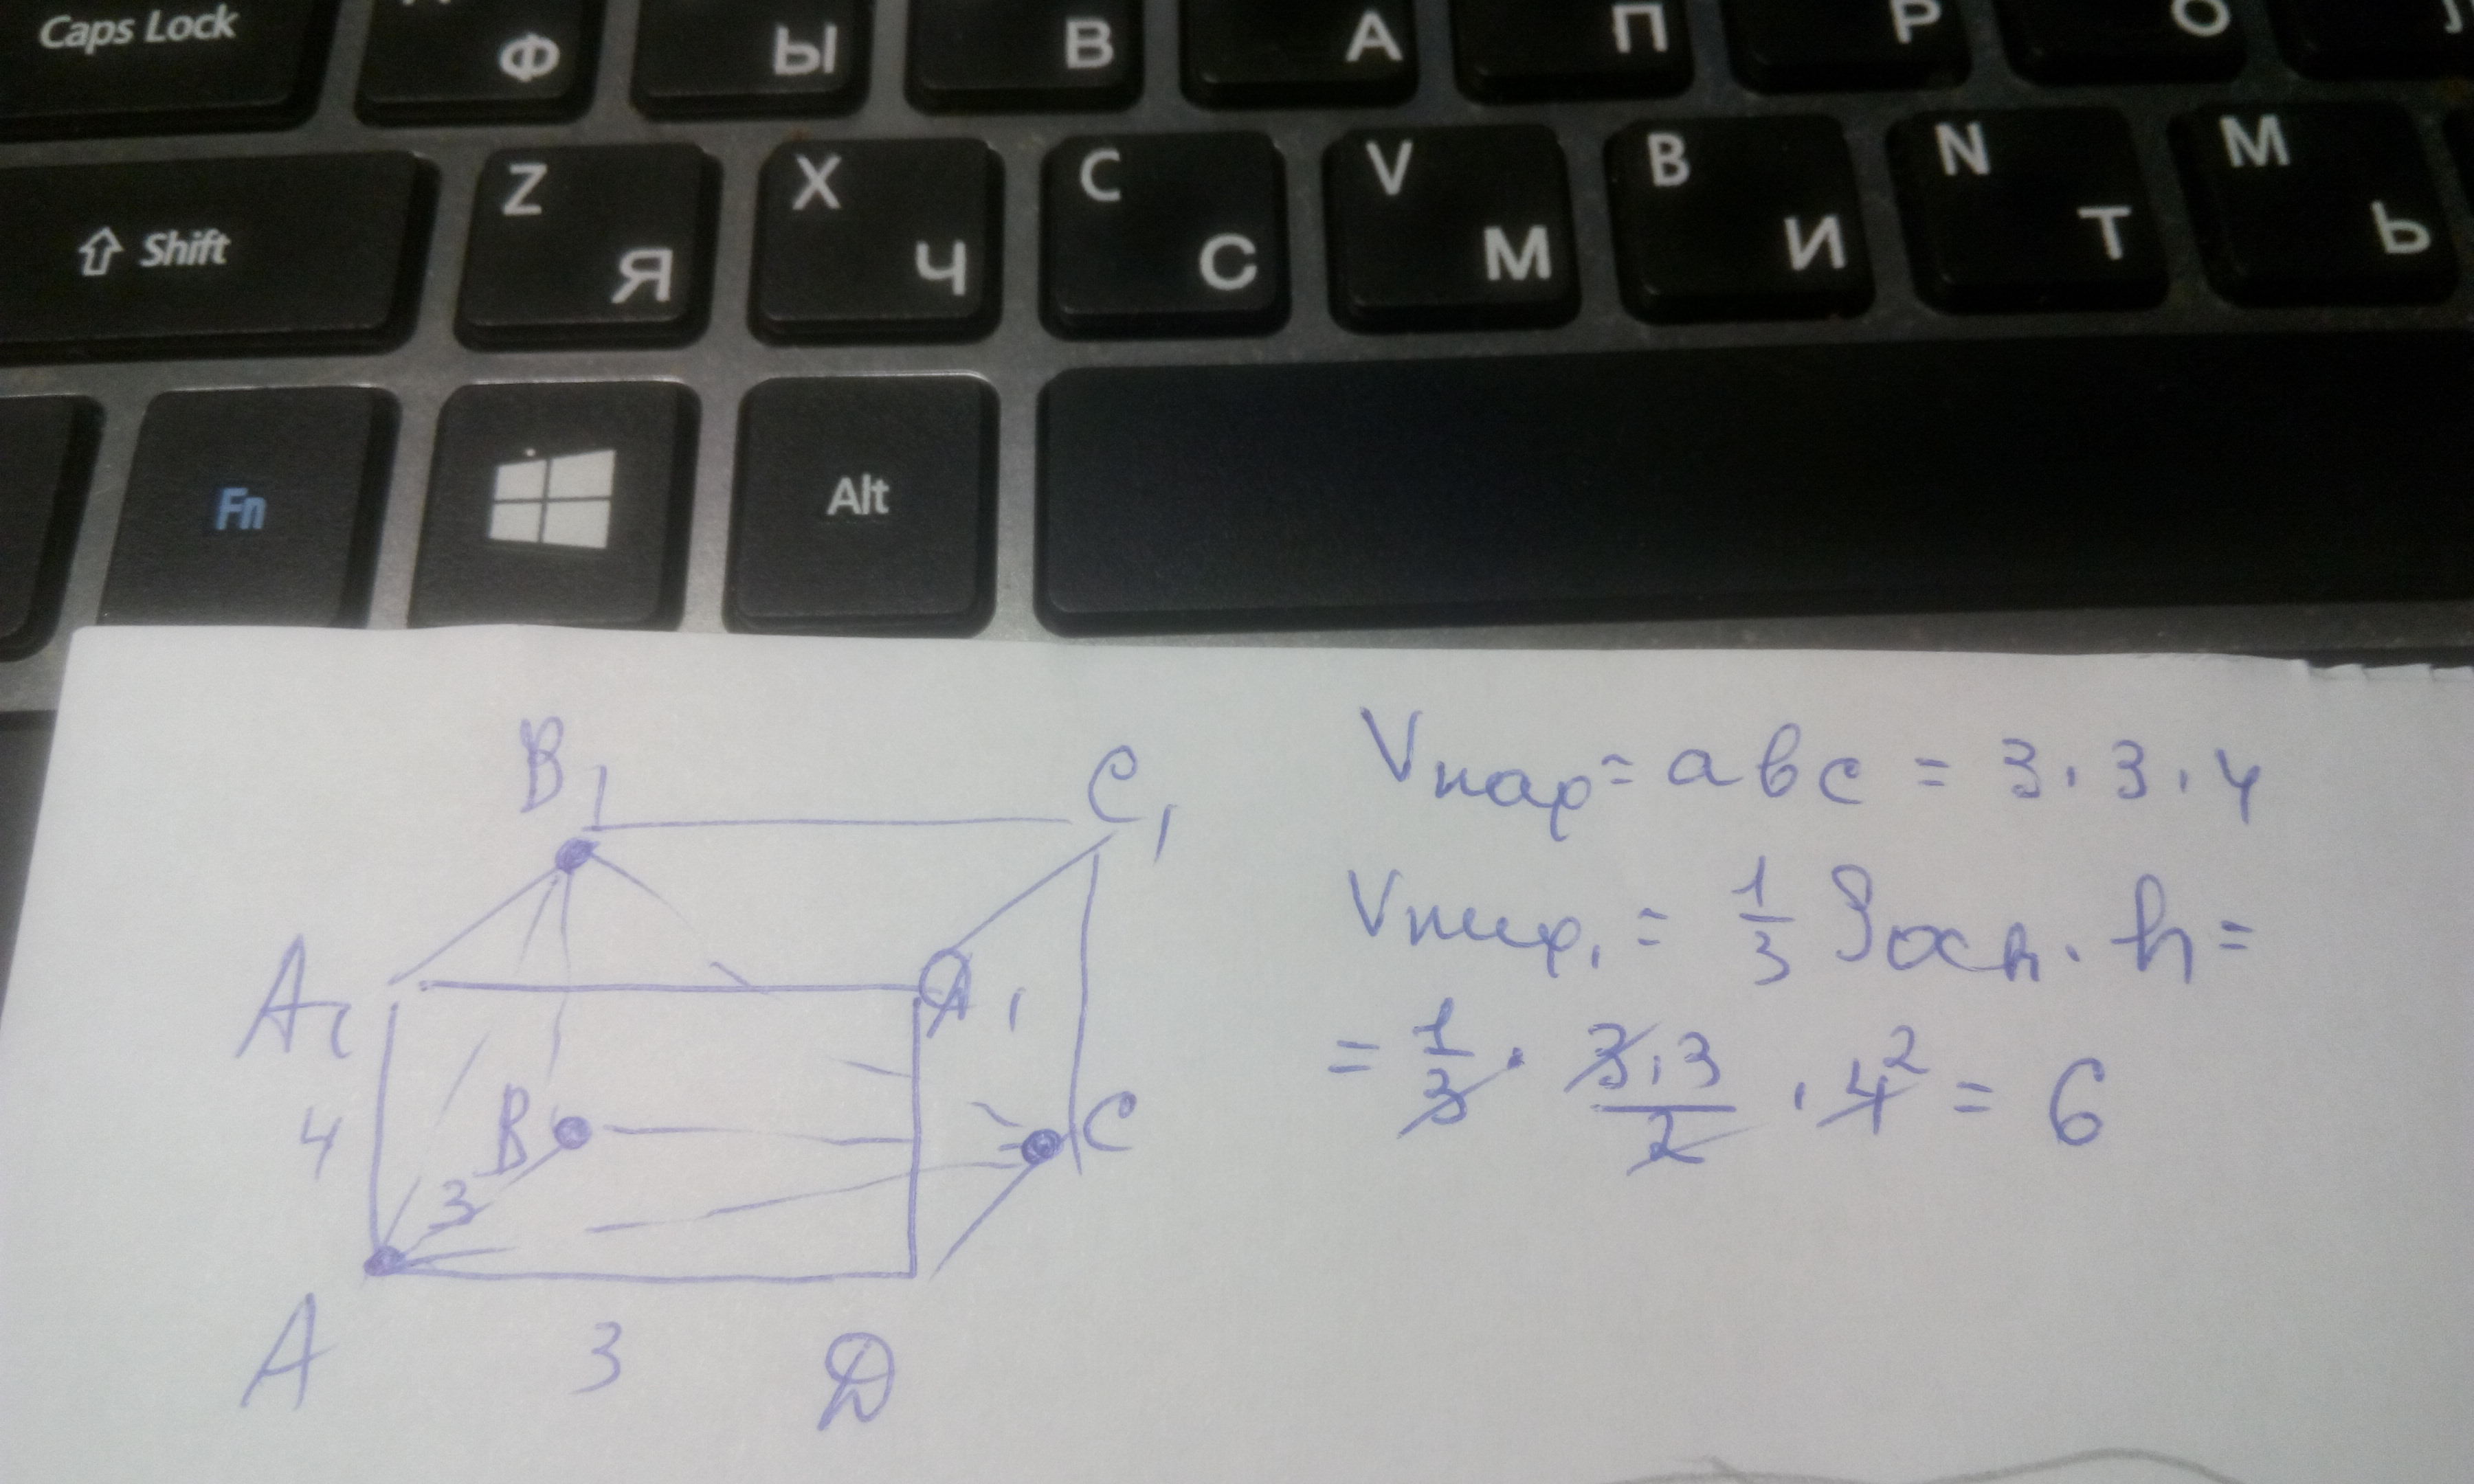 Caps Lock Ф Ы В А П Р О
Shift Z Я X Ч C С V М B И N Т M Ь
Fn Alt
B₁ C₁
A₁ D₁
4 B C
3
A 3 D
Vпар = abc = 3 · 3 · 4
Vпир₁ = 1/3 Sосн · h =
= 1/3 · 3·3/2 · 4² = 6